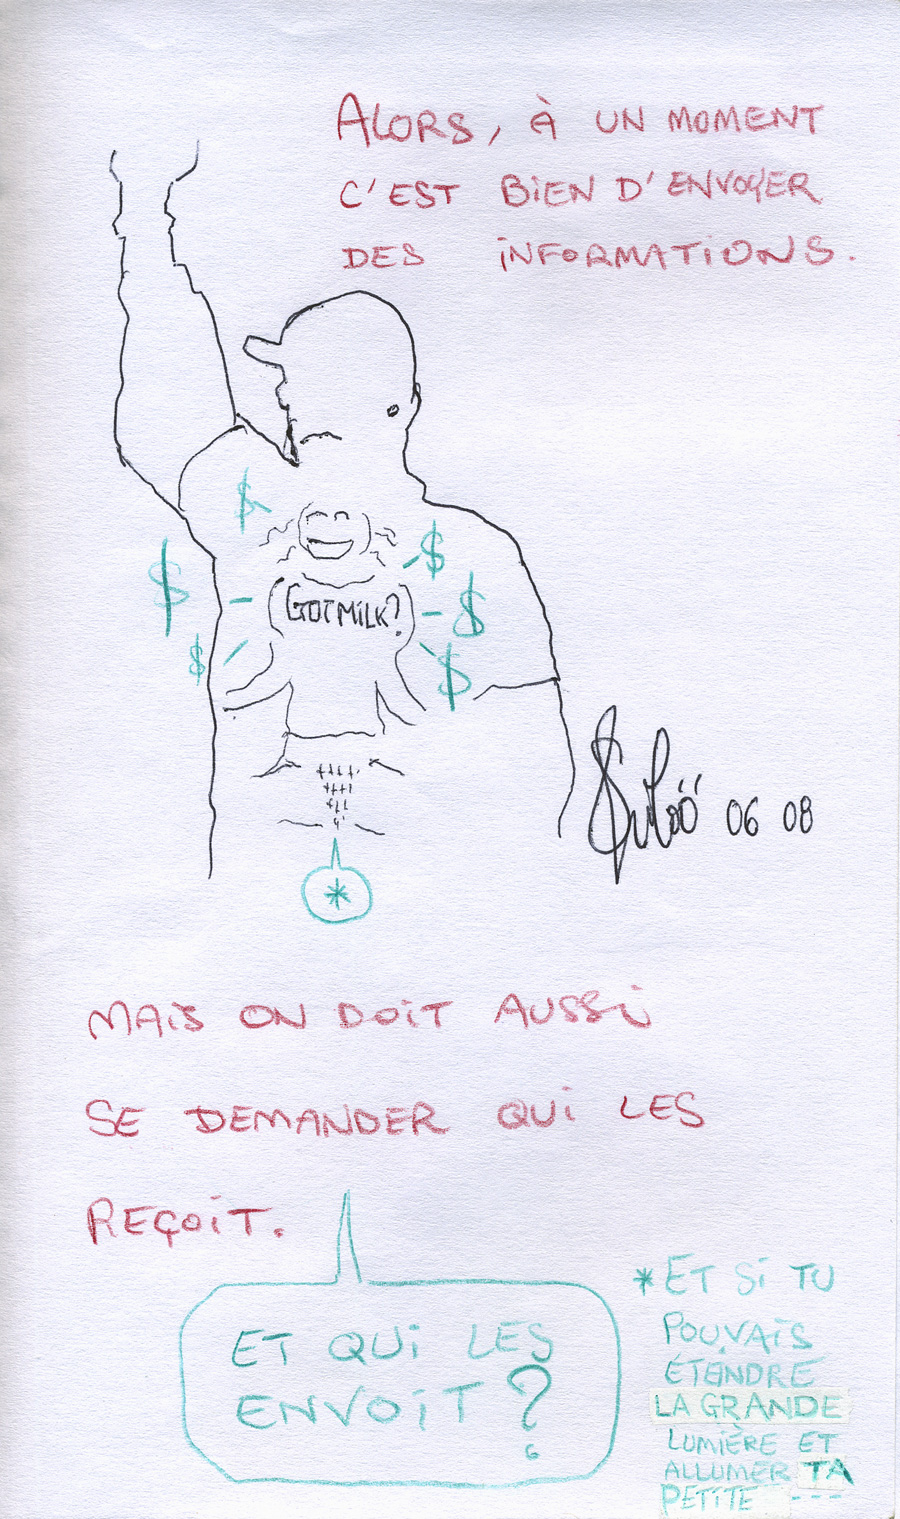 ALORS, À UN MOMENT
C'EST BIEN D'ENVOYER
DES INFORMATIONS.
$
$
$
$
$
$
GOT MILK?
06 08
*
MAIS ON DOIT AUSSI
SE DEMANDER QUI LES
REÇOIT.
ET QUI LES
ENVOIT ?
6
*ET SI TU
POUVAIS
ÉTEINDRE
LA GRANDE
LUMIÈRE ET
ALLUMER TA
PETITE ---